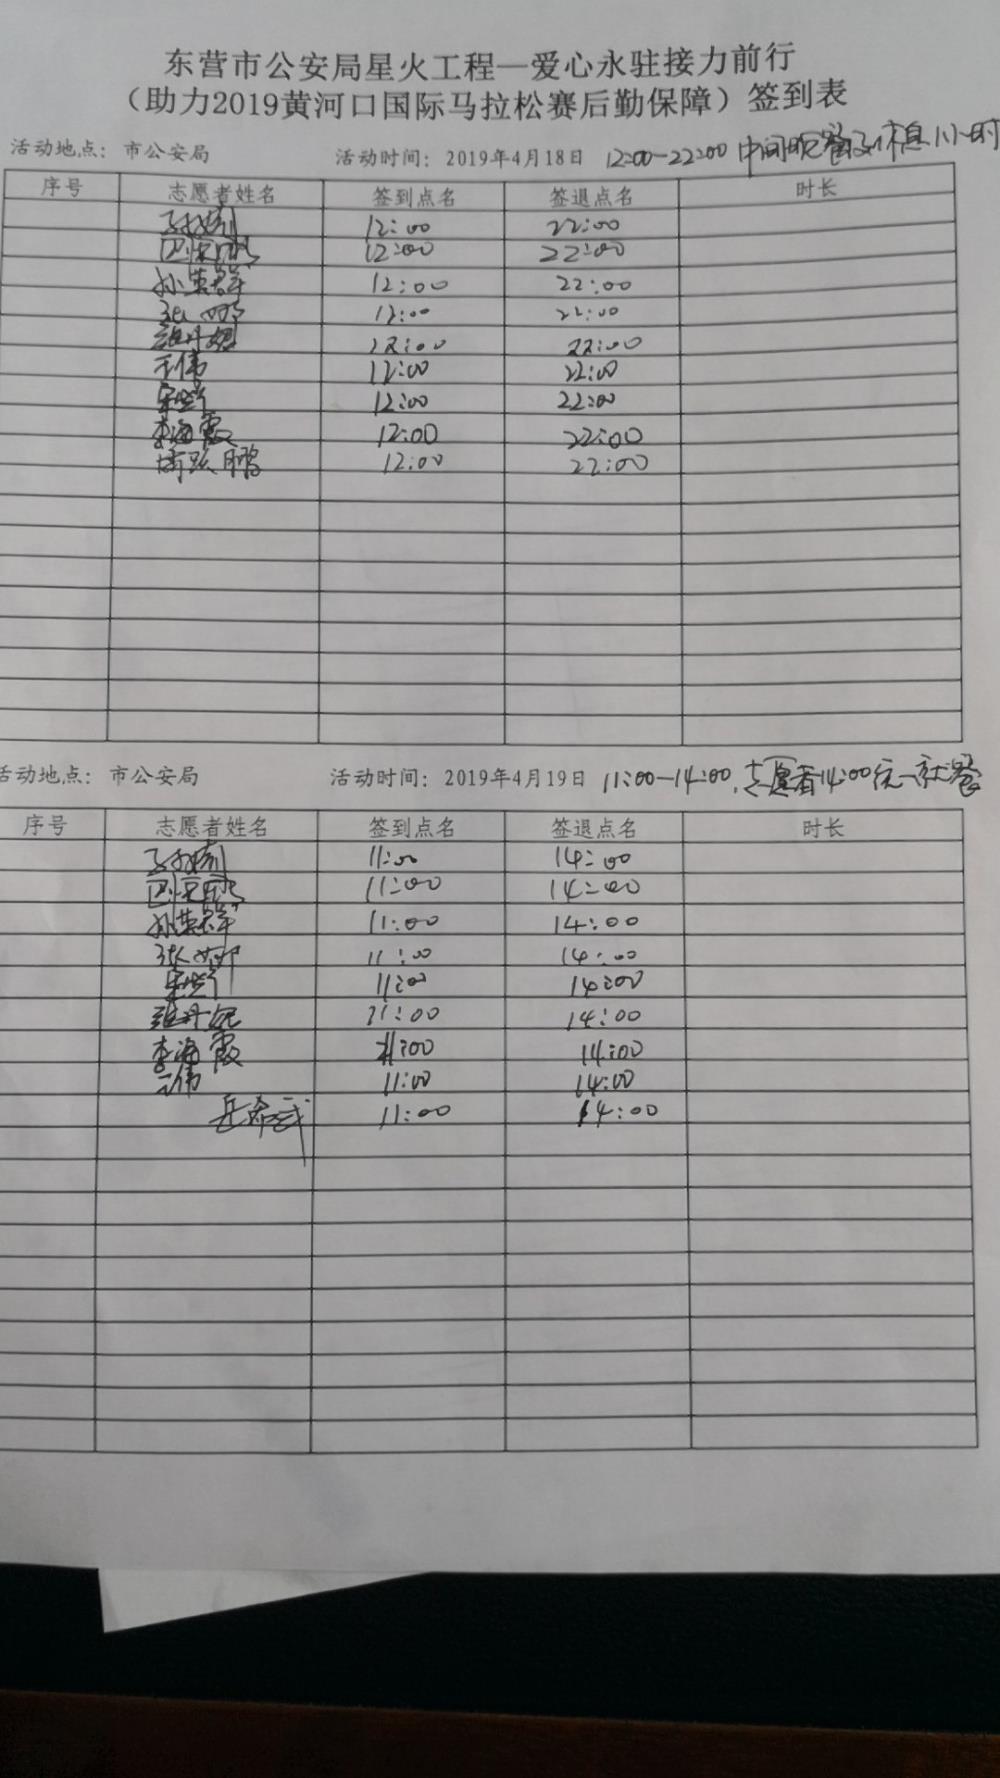 东营市公安局星火工程—爱心永驻接力前行
（助力2019黄河口国际马拉松赛后勤保障）签到表
活动地点：市公安局 活动时间：2019年4月18日 12:00-22:00 中间晚餐及休息1小时
序号 志愿者姓名 签到点名 签退点名 时长
12:00 22:00
12:00 22:00
孙英群 12:00 22:00
张娜 12:00 22:00
12:00 22:00
王伟 12:00 22:00
12:00 22:00
李海霞 12:00 22:00
12:00 22:00
活动地点：市公安局 活动时间：2019年4月19日 11:00-14:00，志愿者14:00统一就餐
序号 志愿者姓名 签到点名 签退点名 时长
11:00 14:00
11:00 14:00
孙英群 11:00 14:00
张娜 11:00 14:00
11:00 14:00
11:00 14:00
李海霞 11:00 14:00
王伟 11:00 14:00
11:00 14:00